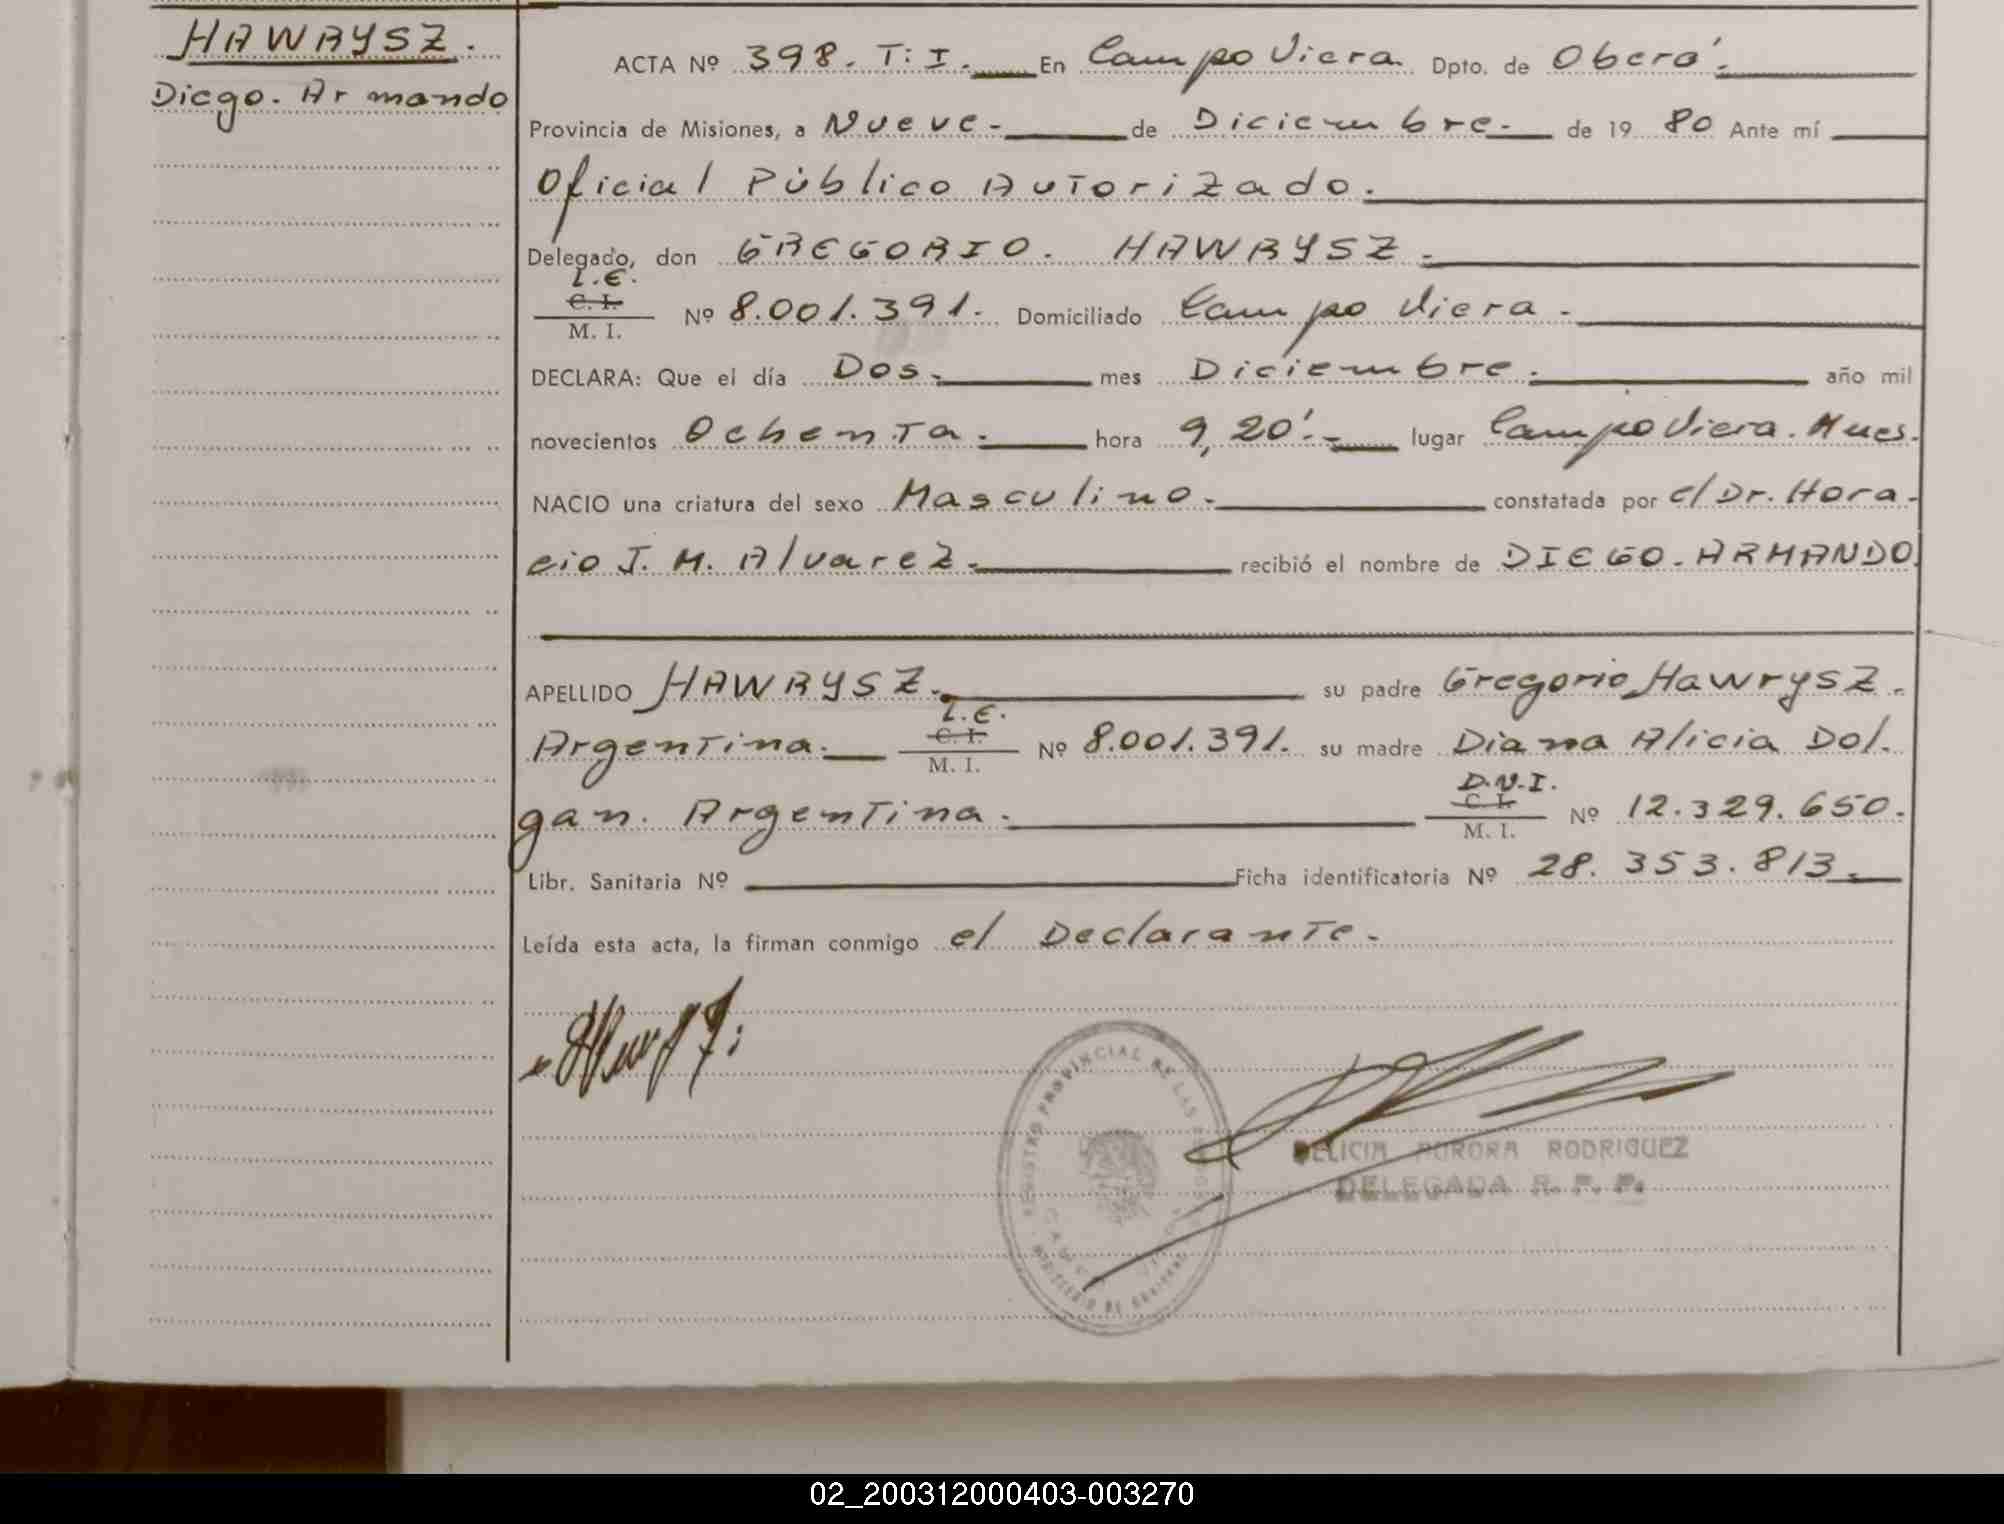 HAWRYSZ.
Diego. Armando
ACTA Nº 398. T: I. En Campo Viera. Dpto. de Oberá.
Provincia de Misiones, a Nueve.- de Diciembre.- de 19 80 Ante mí
Oficial Público Autorizado.
Delegado, don GREGORIO. HAWRYSZ.
L.E.
C. I.
M. I.
Nº 8.001.391. Domiciliado Campo Viera.
DECLARA: Que el día Dos. mes Diciembre. año mil
novecientos Ochenta. hora 9,20'. lugar Campo Viera. Mnes.
NACIO una criatura del sexo Masculino. constatada por c/Dr. Hora-
cio J. M. Alvarez. recibió el nombre de DIEGO. ARMANDO
APELLIDO HAWRYSZ. su padre Gregorio Hawrysz.
L.E.
Argentina. C. I. Nº 8.001.391. su madre Diana Alicia Dol.
M. I.
D.N.I.
gan. Argentina. C. I. Nº 12.329.650.
M. I.
Libr. Sanitaria Nº Ficha identificatoria Nº 28.353.813.
Leída esta acta, la firman conmigo el Declarante.
REGISTRO PROVINCIAL DE LAS
MINISTERIO DE GOBIERNO
DELICIA AURORA RODRIGUEZ
DELEGADA R. P. P.
02_200312000403-003270